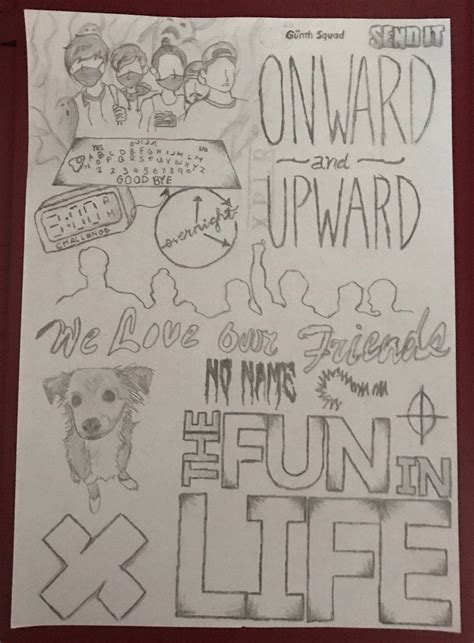 Günth Squad
SEND IT
ONWARD
and
UPWARD
XPLR
OUIJA
YES NO
A B C D E F G H I J K L M
N O P Q R S T U V W X Y Z
1 2 3 4 5 6 7 8 9 0
GOOD BYE
3:00 AM
CHALLENGE
overnight
We Love our Friends
NO NAME
THE FUN IN
LIFE
X